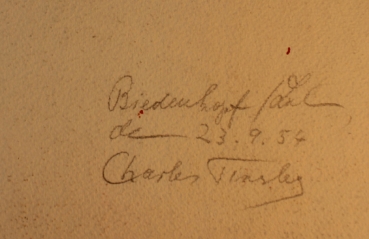 Biedenkopf /Lahn
de 23.9.54
Charles Tinsley